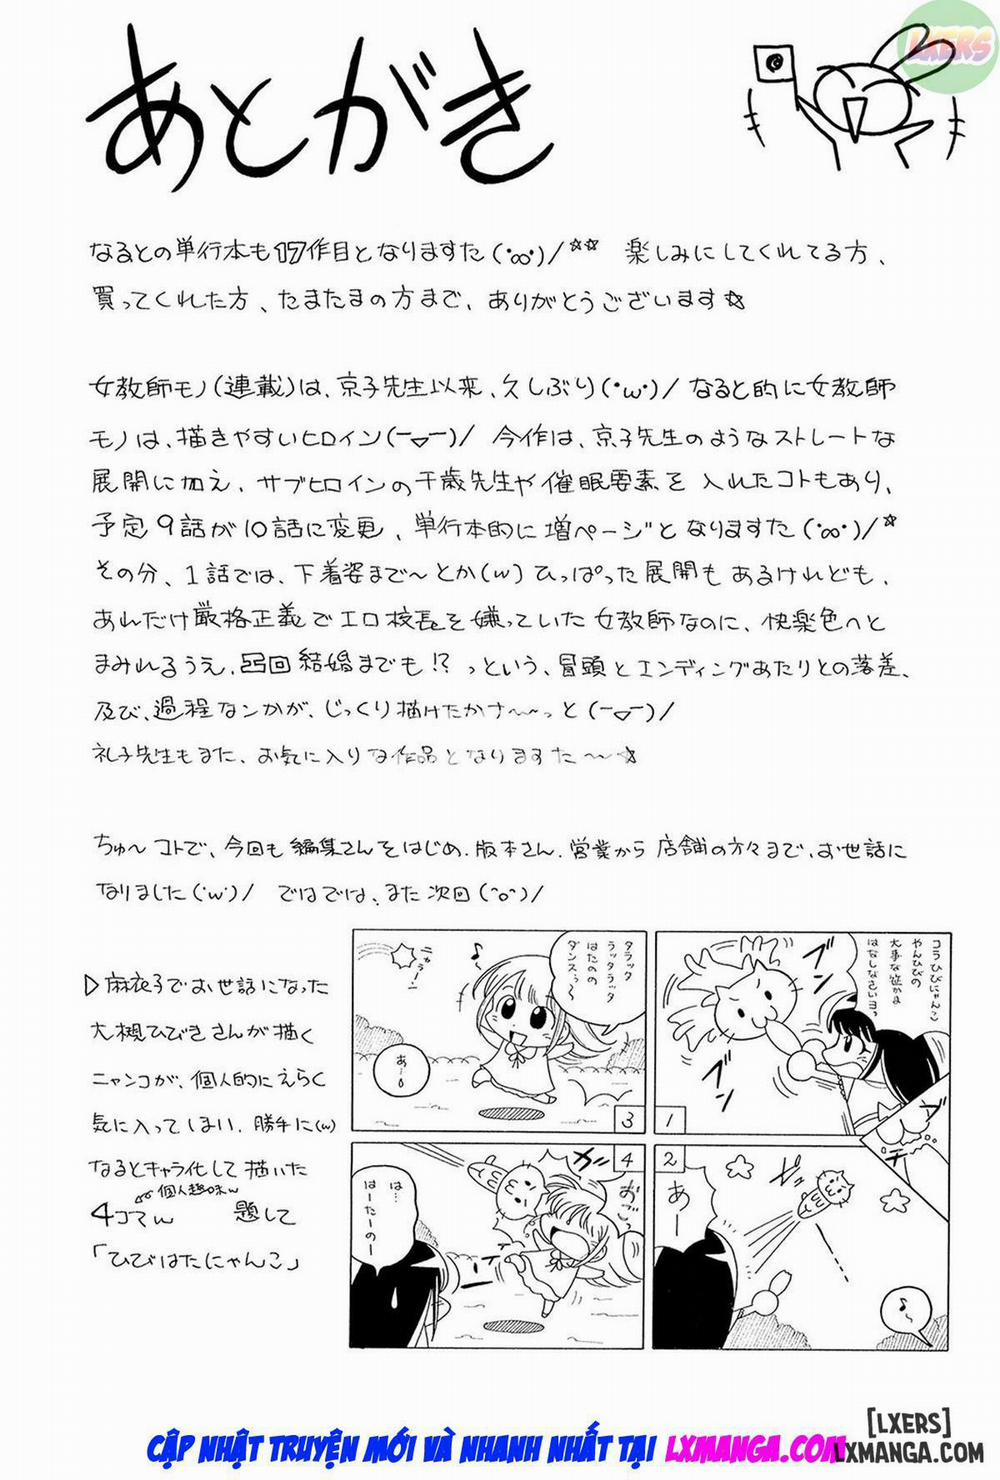 あとがき
LXERS
なるとの単行本も17作目となりますた(・∞・)/☆☆ 楽しみにしてくれてる方、
買ってくれた方、たまたまの方まで、ありがとうございます☆
女教師モノ(連載)は、京子先生以来、久しぶり(・ω・)/ なると的に女教師
モノは、描きやすいヒロイン(ー▽ー)/ 今作は、京子先生のようなストレートな
展開に加え、サブヒロインの千歳先生や催眠要素を入れたコトもあり、
予定9話が10話に変更、単行本的に増ページとなりますた(・∞・)/☆
その分、1話では、下着姿まで〜とか(w)ひっぱった展開もあるけれども、
あれだけ厳格正義でエロ校長を嫌っていた女教師なのに、快楽色へと
まみれるうえ、凸凹結婚までも!? っという、冒頭とエンディングあたりとの落差、
及び、過程なンかが、じっくり描けたかナ〜〜っと(ー▽ー)/
礼子先生もまた、お気に入りな作品となりますた〜☆
ちゅ〜コトで、今回も編集さんをはじめ、版本さん、営業から店舗の方々まで、お世話に
なりました(・ω・)/ ではでは、また次回(^o^)/
▷麻衣子でお世話になった
大槻ひびきさんが描く
ニャンコが、個人的にえらく
気に入ってしまい、勝手に(w)
なるとキャラ化して描いた
個人趣味w
4コマw 題して
「ひびはたにゃんこ」
コラひびにゃんこ
やんひびの
大事な泣かよ
はなしなさいヨっ
ブン
ブン
1
2
あー
♪
タラック
ラッタラッタ
はたのの
ダンスぅ〜
♪
ニャラーン
あー
3
4
ガン
おご
は…
はーたーのー
CẬP NHẬT TRUYỆN MỚI VÀ NHANH NHẤT TẠI LXMANGA.COM
[LXERS]
LXMANGA.COM